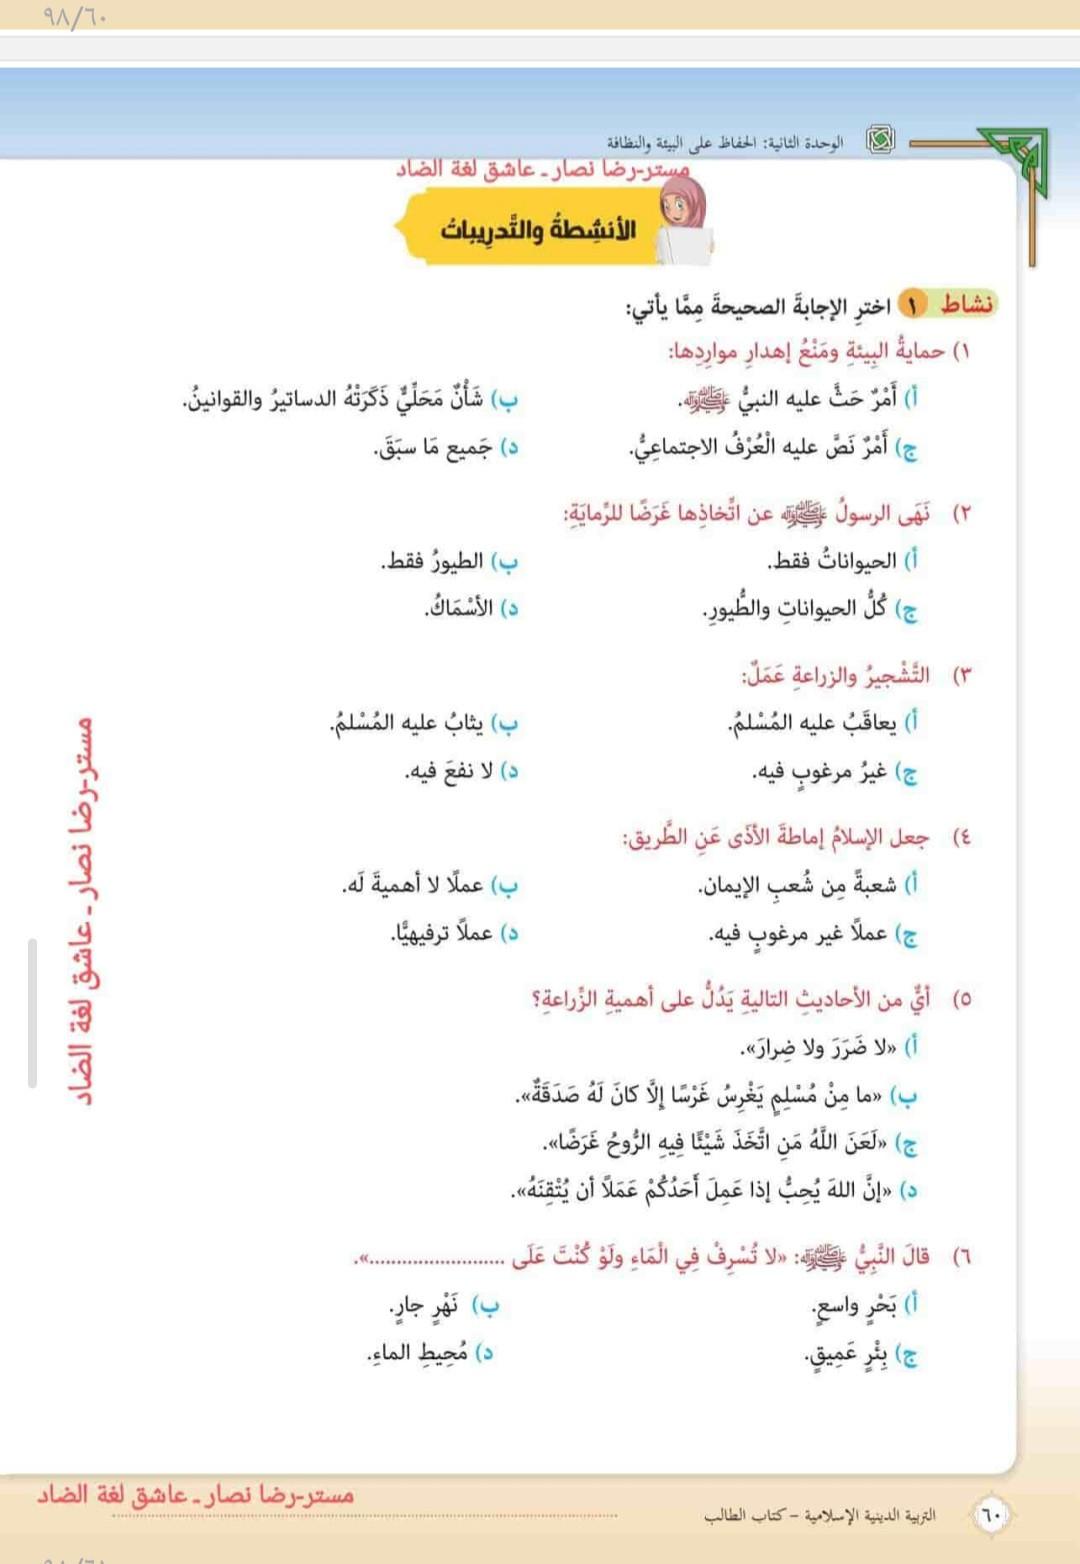 ٩٨/٦٠
الوحدة الثانية: الحفاظ على البيئة والنظافة
مستر-رضا نصار ـ عاشق لغة الضاد
الأنشِطةُ والتَّدرِيباتُ
نشاط ١ اخترِ الإجابةَ الصحيحةَ مِمَّا يأتي:
١) حمايةُ البيئةِ ومَنْعُ إهدارِ مواردِها:
أ) أَمْرٌ حَثَّ عليه النبيُّ ﷺ. ب) شَأْنٌ مَحَلِّيٌّ ذَكَرَتْهُ الدساتيرُ والقوانينُ.
ج) أَمْرٌ نَصَّ عليه الْعُرْفُ الاجتماعِيُّ. د) جَميع مَا سبَقَ.
٢) نَهَى الرسولُ ﷺ عن اتِّخاذِها غَرَضًا للرِّمايَةِ:
أ) الحيواناتُ فقط. ب) الطيورُ فقط.
ج) كُلُّ الحيواناتِ والطُّيورِ. د) الأسْمَاكُ.
٣) التَّشْجيرُ والزراعةِ عَمَلٌ:
أ) يعاقَبُ عليه المُسْلمُ. ب) يثابُ عليه المُسْلمُ.
ج) غيرُ مرغوبٍ فيه. د) لا نفعَ فيه.
٤) جعل الإسلامُ إماطةَ الأذَى عَنِ الطَّريق:
أ) شعبةً مِن شُعبِ الإيمان. ب) عملًا لا أهميةَ لَه.
ج) عملًا غير مرغوبٍ فيه. د) عملًا ترفيهيًّا.
٥) أيٌّ من الأحاديثِ التاليةِ يَدُلُّ على أهميةِ الزِّراعةِ؟
أ) «لا ضَرَرَ ولا ضِرارَ».
ب) «ما مِنْ مُسْلِمٍ يَغْرِسُ غَرْسًا إلَّا كانَ لَهُ صَدَقَةٌ».
ج) «لَعَنَ اللَّهُ مَنِ اتَّخَذَ شَيْئًا فِيهِ الرُّوحُ غَرَضًا».
د) «إنَّ اللهَ يُحِبُّ إذا عَمِلَ أَحَدُكُمْ عَمَلًا أن يُتْقِنَهُ».
٦) قالَ النَّبِيُّ ﷺ: «لا تُسْرِفْ فِي الْمَاءِ ولَوْ كُنْتَ عَلَى .........................».
أ) بَحْرٍ واسعٍ. ب) نَهْرٍ جارٍ.
ج) بِئْرٍ عَمِيقٍ. د) مُحِيطِ الماءِ.
مستر-رضا نصار ـ عاشق لغة الضاد
مستر-رضا نصار ـ عاشق لغة الضاد
٦٠ التربية الدينية الإسلامية – كتاب الطالب